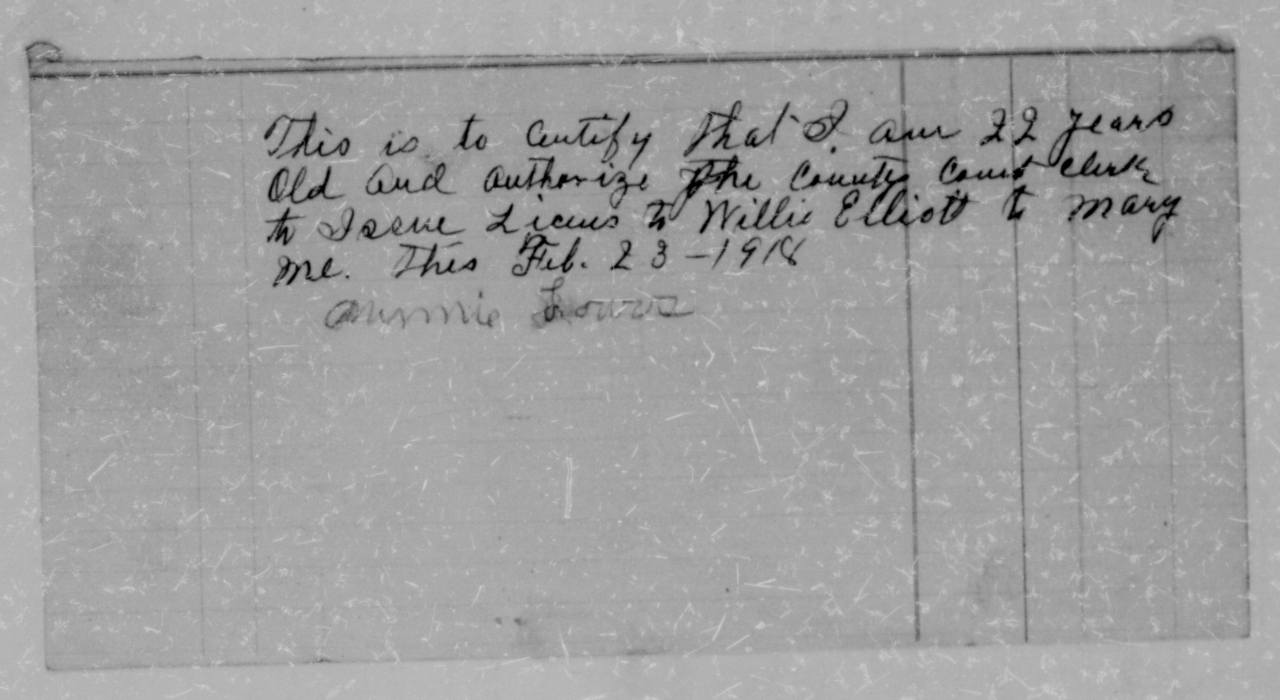 This is to Certify that I am 22 years
Old and authorize the County Court Clerk
to Issue Licens to Willie Elliott to mary
me. this Feb. 23-1918